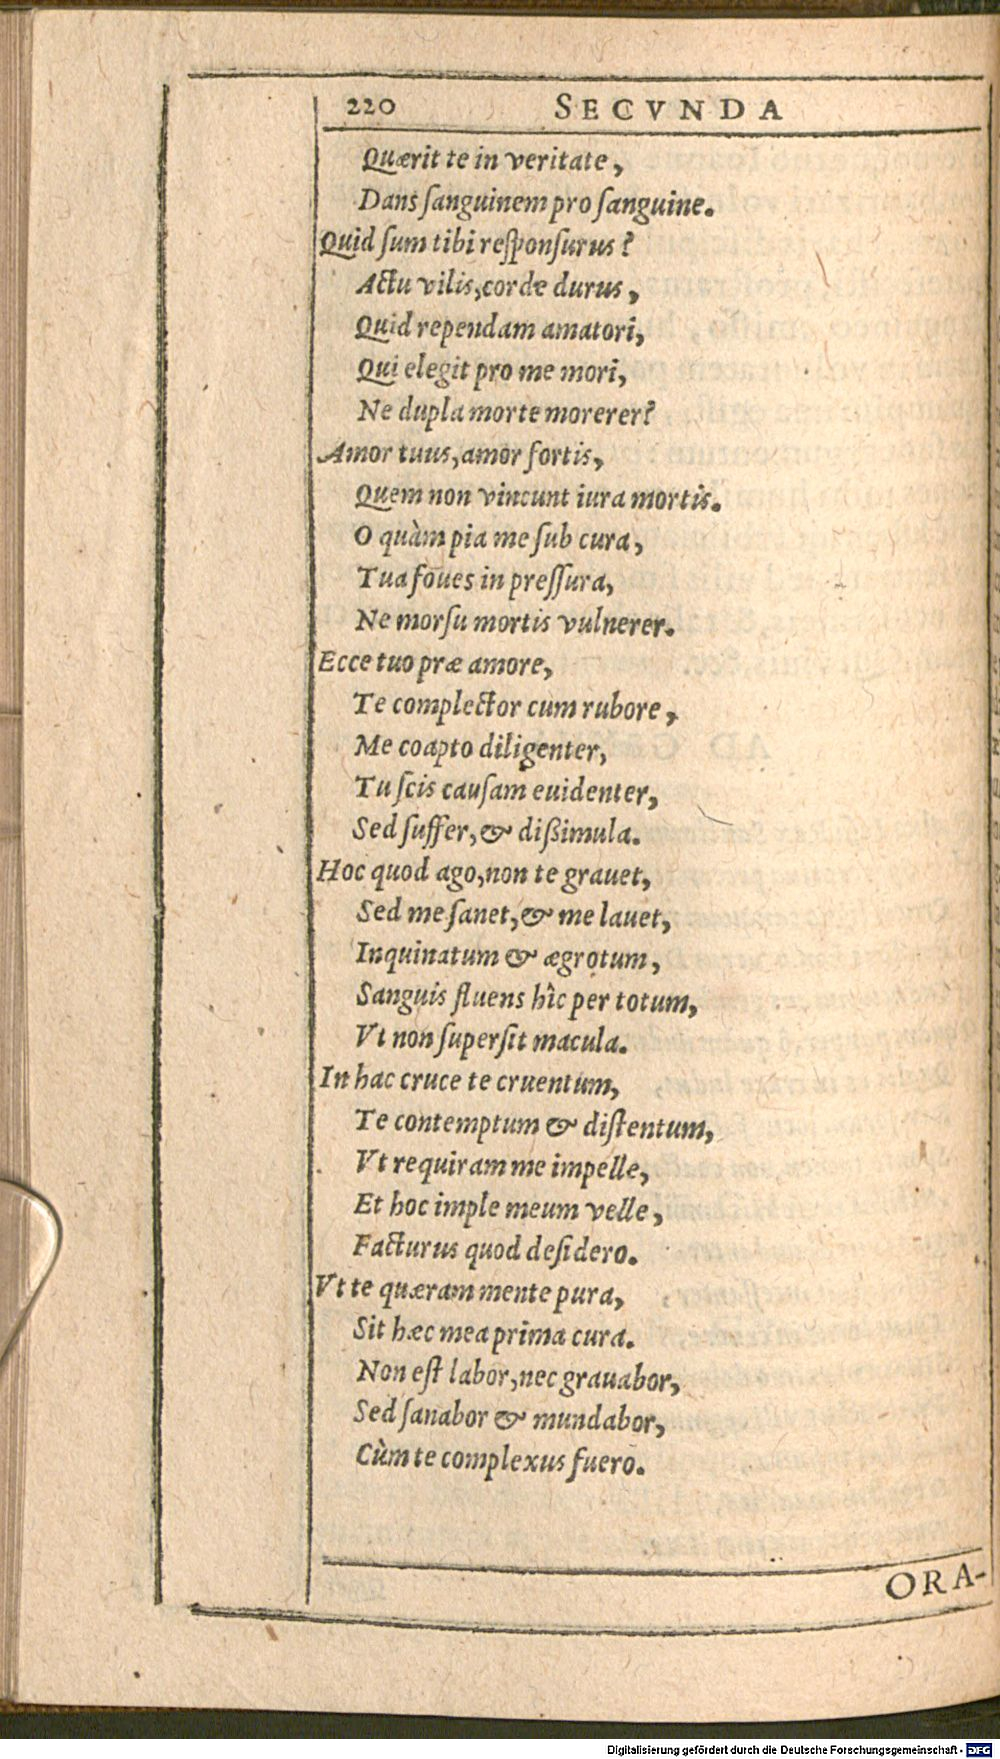 220 SECVNDA
Quærit te in veritate,
Dans ſanguinem pro ſanguine.
Quid ſum tibi reſponſurus?
Actu vilis, corde durus,
Quid rependam amatori,
Qui elegit pro me mori,
Ne dupla morte morerer?
Amor tuus, amor fortis,
Quem non vincunt iura mortis.
O quàm pia me ſub cura,
Tua foues in preſſura,
Ne morſu mortis vulnerer.
Ecce tuo præ amore,
Te complector cum rubore,
Me coapto diligenter,
Tu ſcis cauſam euidenter,
Sed ſuffer, & dißimula.
Hoc quod ago, non te grauet,
Sed me ſanet, & me lauet,
Inquinatum & ægrotum,
Sanguis fluens hîc per totum,
Vt non ſuperſit macula.
In hac cruce te cruentum,
Te contemptum & diſtentum,
Vt requiram me impelle,
Et hoc imple meum velle,
Facturus quod deſidero.
Vt te quæram mente pura,
Sit hæc mea prima cura.
Non eſt labor, nec grauabor,
Sed ſanabor & mundabor,
Cùm te complexus fuero.
ORA-
Digitalisierung gefördert durch die Deutsche Forschungsgemeinschaft - DFG